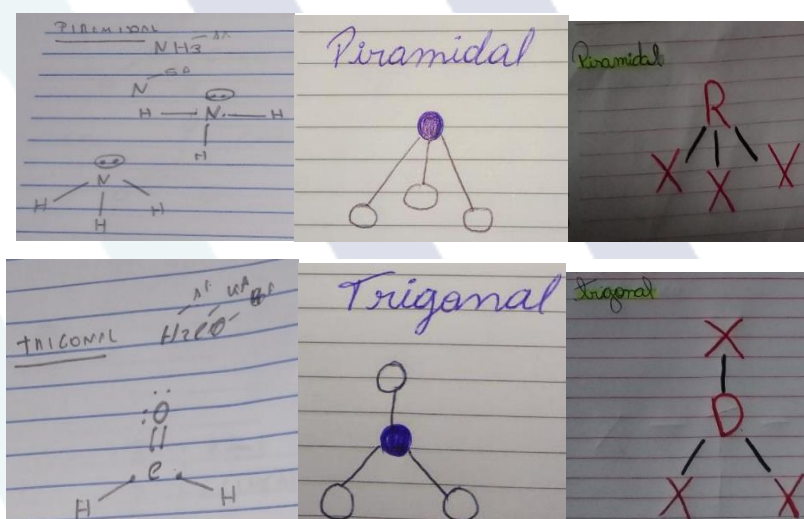 PIRAMIDAL
NH3 5A
N 5A
H N H
H
N
H H
H
Piramidal
Piramidal
R
X X X
TRIGONAL
H2CO
O
C
H H
Trigonal
trigonal
X
D
X X